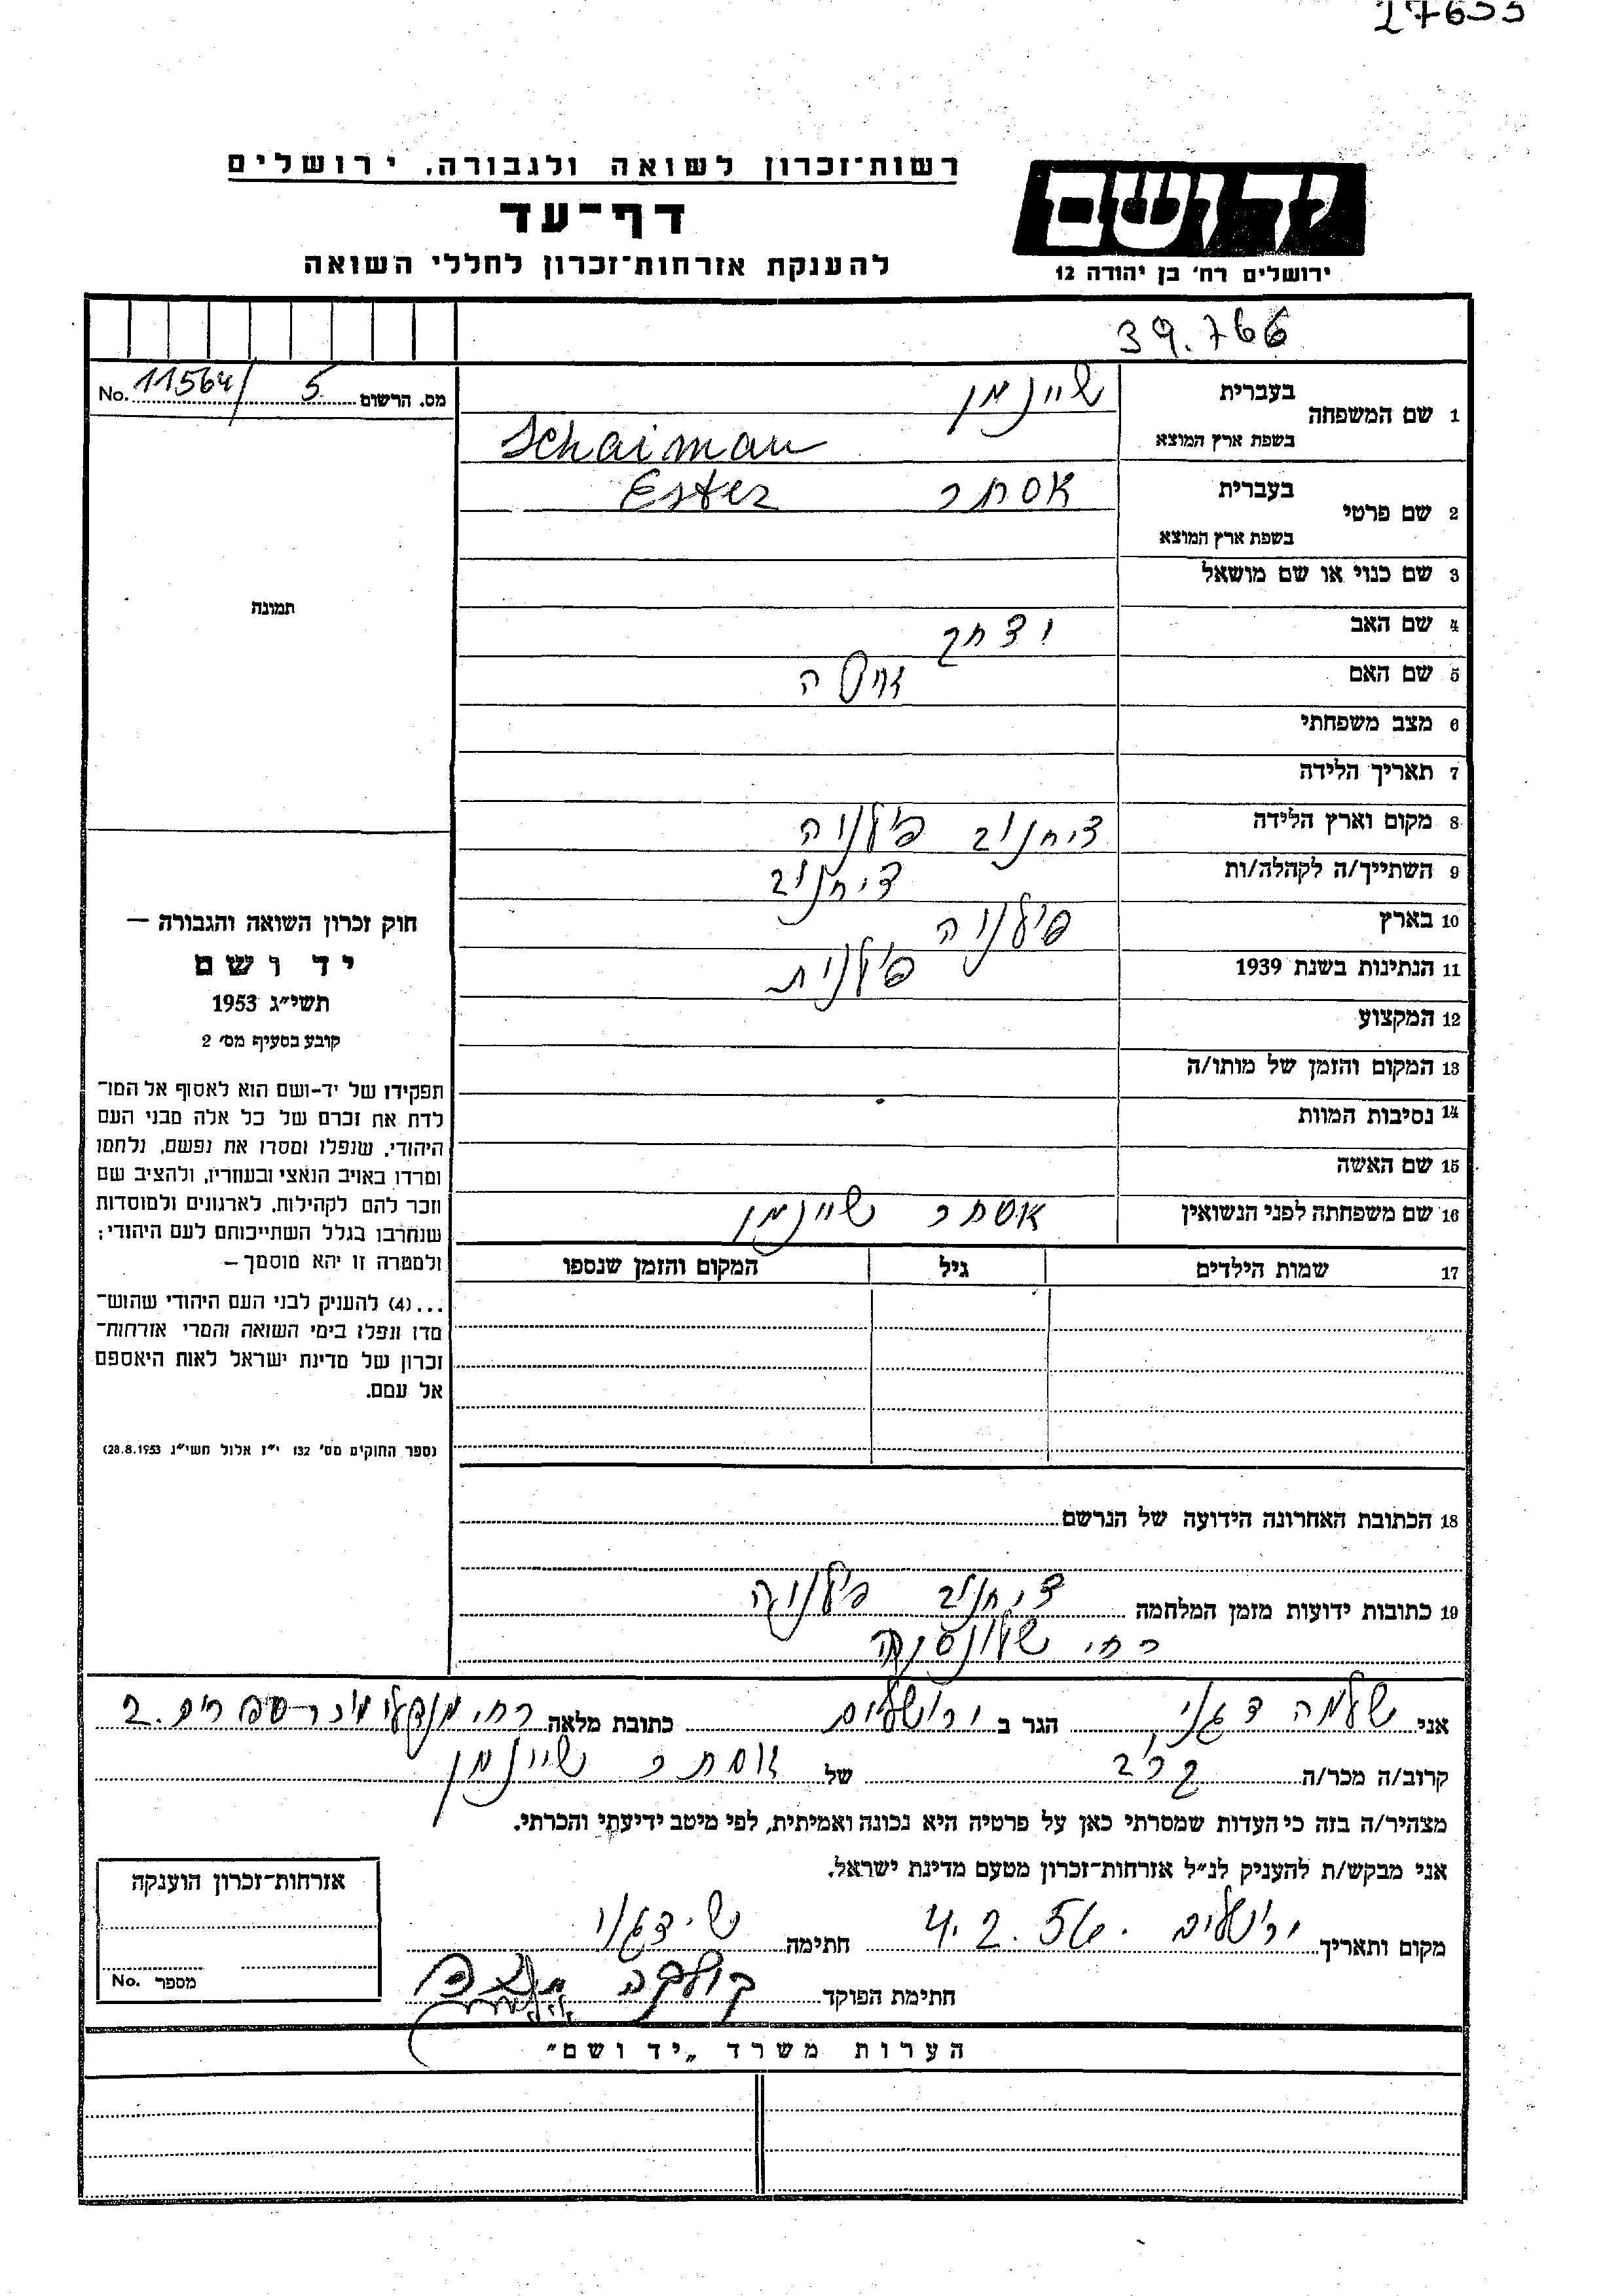 27655
רשות־זכרון לשואה ולגבורה, ירושלים
דף־עד
להענקת אזרחות־זכרון לחללי השואה
יד ושם
ירושלים רח' בן יהודה 12
39.766
מס. הרשום 5 / 11564 No.
1 שם המשפחה בעברית שיינמן
בשפת ארץ המוצא Schaiman
2 שם פרטי בעברית אסתר Ester
בשפת ארץ המוצא
3 שם כנוי או שם מושאל
4 שם האב יצחק
5 שם האם
6 מצב משפחתי
7 תאריך הלידה
8 מקום וארץ הלידה ציחנוב פולניה
9 השתייך/ה לקהלה/ות ציחנוב
10 בארץ פולניה
11 הנתינות בשנת 1939 פולנית
12 המקצוע
13 המקום והזמן של מותו/ה
14 נסיבות המוות
15 שם האשה
16 שם משפחתה לפני הנשואין אסתר שיינמן
17 שמות הילדים גיל המקום והזמן שנספו
18 הכתובת האחרונה הידועה של הנרשם
19 כתובות ידועות מזמן המלחמה ציחנוב פולניה
רח'
תמונה
חוק זכרון השואה והגבורה —
יד ושם
תשי״ג 1953
קובע בסעיף מס׳ 2
תפקידו של יד-ושם הוא לאסוף אל המו־
לדת את זכרם של כל אלה מבני העם
היהודי, שנפלו ומסרו את נפשם, נלחמו
ומרדו באויב הנאצי ובעוזריו, ולהציב שם
וזכר להם לקהילות, לארגונים ולמוסדות
שנחרבו בגלל השתייכותם לעם היהודי;
ולמטרה זו יהא מוסמך —
...(4) להעניק לבני העם היהודי שהוש־
מדו ונפלו בימי השואה והמרי אזרחות־
זכרון של מדינת ישראל לאות היאספם
אל עמם.
(ספר החוקים מס׳ 132 י״ז אלול תשי״ג 28.8.1953)
אני שלמה דגני הגר ב ירושלים כתובת מלאה רח' מנדלי מוכר ספרים 2.
קרוב/ה מכר/ה קרוב של אסתר שיינמן
מצהיר/ה בזה כי העדות שמסרתי כאן על פרטיה היא נכונה ואמיתית, לפי מיטב ידיעתי והכרתי.
אני מבקש/ת להעניק לנ״ל אזרחות-זכרון מטעם מדינת ישראל.
מקום ותאריך ירושלים 4.2.56 חתימה ש. דגני
חתימת הפוקד
אזרחות-זכרון הוענקה
מספר No.
הערות משרד „יד ושם״